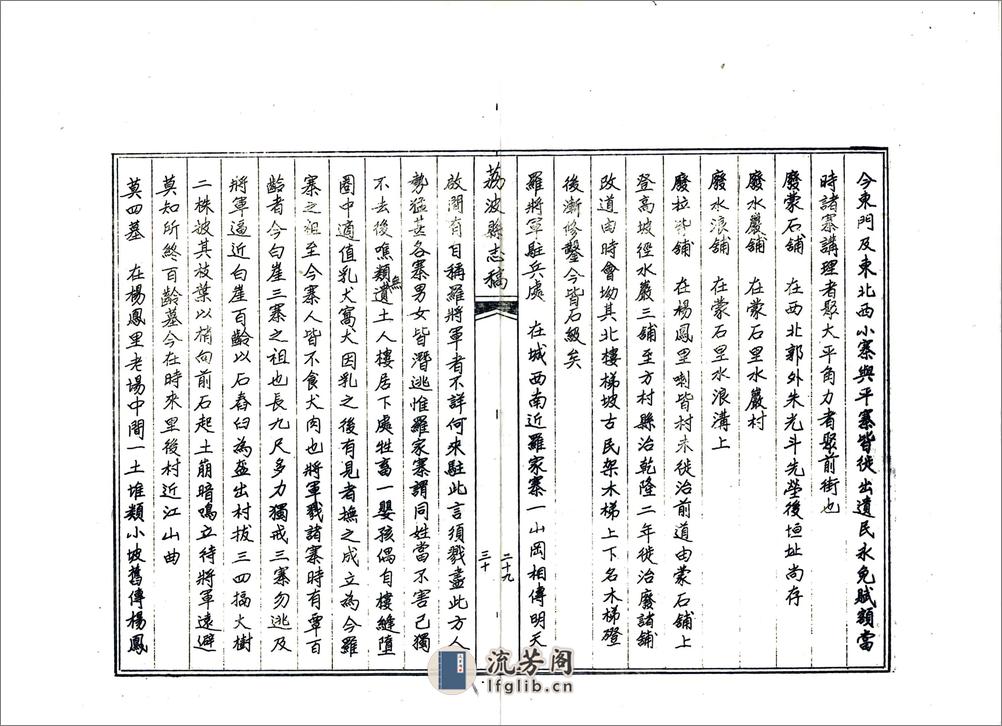 今東門及東北西小寨與平寨皆徙出遺民永免賦額當
時諸寨講理者聚大平角力者聚前街也
廢蒙石舖　在西北郭外朱光斗先塋後垣址尚存
廢水巖舖　在蒙石里水巖村
廢水浪舖　在蒙石里水浪溝上
廢拉舖　在楊鳳里喇皆村未徙治前道由蒙石舖上
登高坡徑水巖三舖至方村縣治乾隆二年徙治廢諸舖
改道由時會坳其北樓梯坡古民架木梯上下名木梯磴
後漸修鑿今皆石級矣
羅將軍駐兵處　在城西南近羅家寨一山岡相傳明天
二十九
荔波縣志稿
三十
啟間有自稱羅將軍者不詳何來駐此言須戮盡此方人
勢猛甚各寨男女皆潛逃惟羅家寨謂同姓當不害己獨
不去後噍類無遺土人樓居下處牲畜一嬰孩偶自樓縫墮
圈中適值乳犬窩犬因乳之後有見者撫之成立為今羅
寨之祖至今寨人皆不食犬肉也將軍戮諸寨時有覃百
齡者今白崖三寨之祖也長九尺多力獨戒三寨勿逃及
將軍逼近白崖百齡以石舂臼為盔出村拔三四搞大樹
二株披其枝葉以梢向前石起土崩暗鳴立待將軍遠避
莫知所終百齡墓今在時來里後村近江山曲
莫四墓　在楊鳳里老場中間一土堆類小坡舊傳楊鳳
流芳阁
lfglib.cn